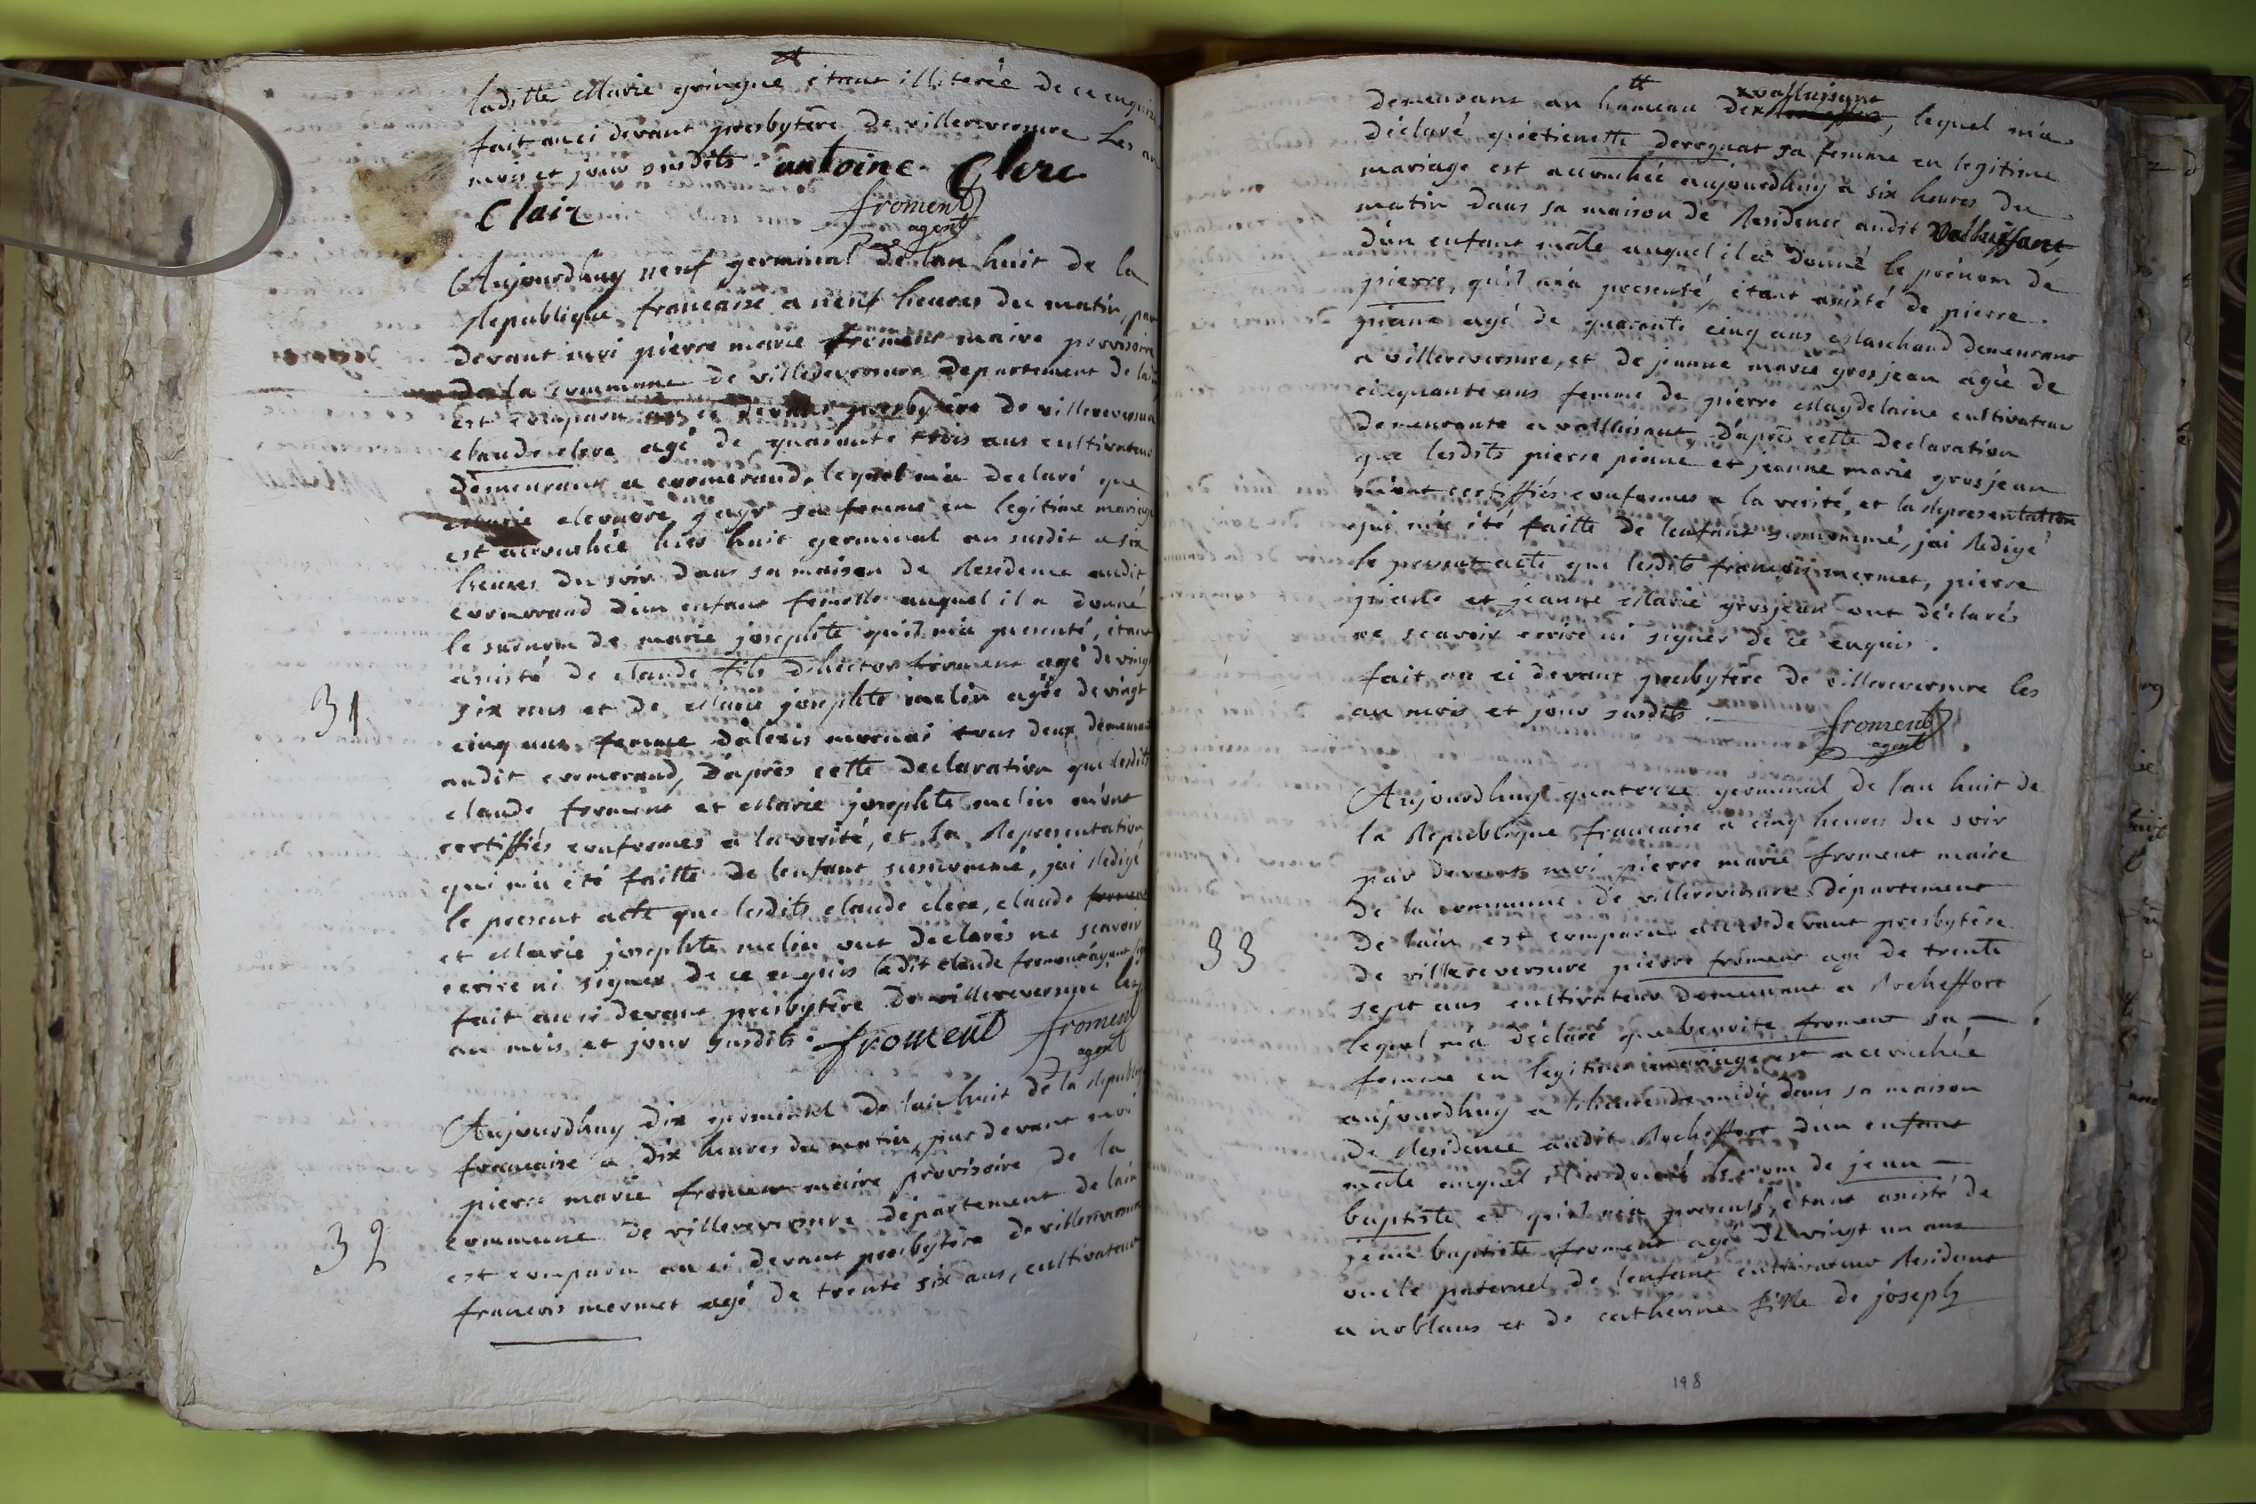 laditte Marie gringue étant illiterée de ce enquise
fait au ci devant presbytère de villereversure Les an
mois et jour susdits. antoine Clerc
Clair froment
agent
Aujourdhuy neuf germinal de lan huit de la
Republique francaise a neuf heures du matin, par
devant moi pierre marie froment maire provisoire
de la commune de villedeversure departement de lain
est comparu au ci devant presbytère de villereversure
claude clerc agé de quarante trois ans cultivateur
demeurant a cormorand, lequel m'a declaré que
Marie sa femme en legitime mariage
est accouchée hier huit germinal an susdit a six
heures du soir dans sa maison de Residence audit
cormorand d'un enfant femelle auquel il a donné
le surnom de marie josephte qu'il m'a presenté, étant
assisté de claude fils d'hector froment agé de vingt
six ans et de Marie josephte melin agée de vingt
cinq ans femme d'alexis mornai tous deux demeurant
audit cormorand, d'après cette declaration que lesdits
claude forment et Marie josephte melin m'ont
certiffiés conformes a la verité, et la Representation
qui m'a été faitte de lenfant susnommé, jai Redigé
le present acte que lesdits claude clerc, claude froment
et Marie josephte melin ont declarés ne scavoir
ecrire ni signer de ce enquis ledit claude froment ayant
fait au ci devant presbytère de villereversure les
an mois et jour susdits. froment froment
agent
31
Aujourdhuy dix germinal de lan huit de la Republique
francaise a dix heures du matin, par devant moi
pierre marie froment maire provisoire de la
commune de villereversure departement de lain
est comparu au ci devant presbytère de villereversure
francois mermet agé de trente six ans, cultivateur
32
demeurant au hameau de valluissant, lequel m'a
déclaré qu'etienette deregnat sa femme en legitime
mariage est accouchée aujourdhuy à six heures du
matin dans sa maison de Residence audit Valluissant
d'un enfant mâle auquel il a donné le prénom de
pierre, qu'il m'a presenté, étant assisté de pierre
piane agé de quarante cinq ans Marchand demeurant
a villereversure, et de jeanne marie grosjean agée de
cinquante ans femme de pierre Magdelaine cultivateur
demeurante a valluisant, d'après cette declaration
que lesdits pierre pianne et jeanne marie grosjean
m'ont certiffiés conformes a la verité, et la Representation
qui m'a été faitte de lenfant susnommé, jai Redigé
le present acte que lesdits francois mermet, pierre
piane et jeanne Marie grosjean ont déclarés
ne scavoir ecrire ni signer de ce enquis.
fait au ci devant presbytère de villereversure les
an mois et jour susdits. froment
agent
Aujourdhuy quatorze germinal de l'an huit de
la Republique francaise a cinq heures du soir
par devant moi pierre marie froment maire
de la commune de villereversure departement
de lain est comparu au ci devant presbytère
de villereversure pierre froment agé de trente
sept ans cultivateur demeurant a Rocheffort
lequel m'a déclaré que benoite froment sa
femme en legitime mariage est accouchée
aujourdhuy a lheure de midi dans sa maison
de Residence audit Rocheffort d'un enfant
mâle auquel il a donné le nom de jean
baptiste et qu'il m'a presenté, étant assisté de
jean baptiste froment agé de vingt un ans
oncle paternel de lenfant cultivateur Residant
a noblans et de catherine fille de joseph
33
198